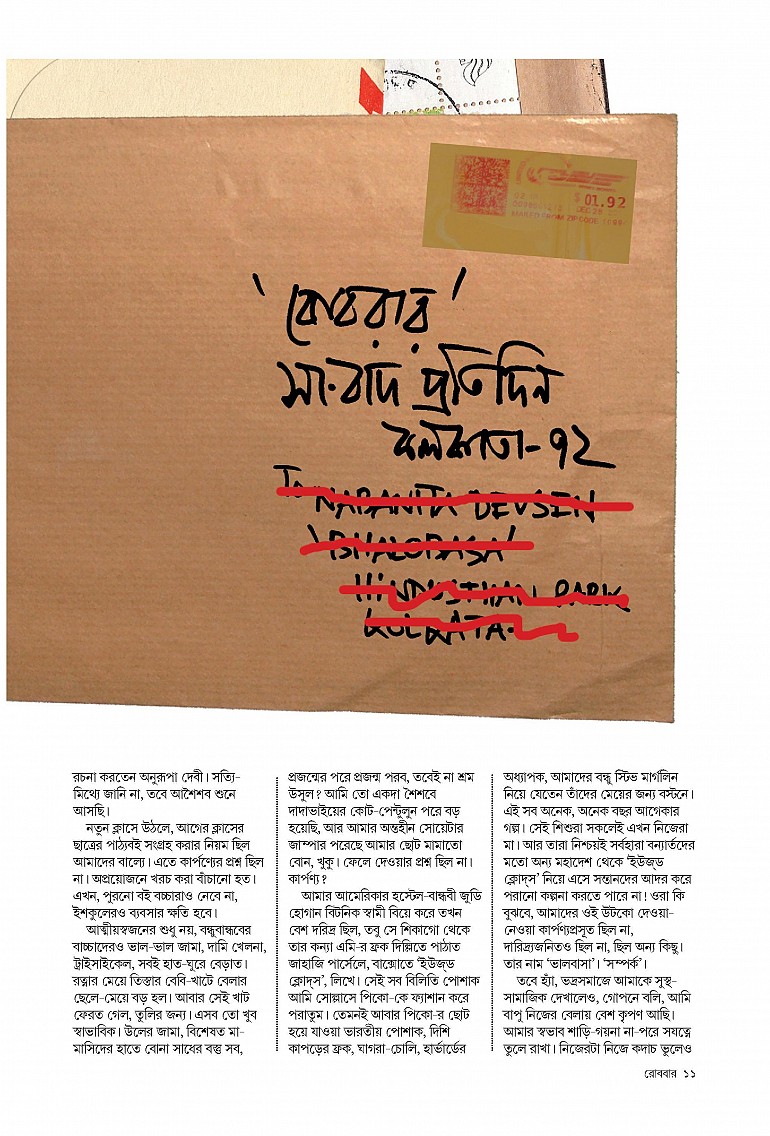 $ 01.92
DEC 28
MAILED FROM ZIP CODE
'রোববার'
সংবাদ প্রতিদিন
কলকাতা-৭২
To NABANITA DEVSEN
'BHALOBASA'
HINDUSTHAN PARK
KOLKATA-
রচনা করতেন অনুরূপা দেবী। সত্যি-
মিথ্যে জানি না, তবে আশৈশব শুনে
আসছি।
নতুন ক্লাসে উঠলে, আগের ক্লাসের
ছাত্রের পাঠ্যবই সংগ্রহ করার নিয়ম ছিল
আমাদের বাল্যে। এতে কার্পণ্যের প্রশ্ন ছিল
না। অপ্রয়োজনে খরচ করা বাঁচানো হত।
এখন, পুরনো বই বচ্চারাও নেবে না,
ইশকুলেরও ব্যবসার ক্ষতি হবে।
আত্মীয়স্বজনের শুধু নয়, বন্ধুবান্ধবের
বাচ্চাদেরও ভাল-ভাল জামা, দামি খেলনা,
ট্রাইসাইকেল, সবই হাত-ঘুরে বেড়াত।
রত্নার মেয়ে তিস্তার বেবি-খাটে বেলার
ছেলে-মেয়ে বড় হল। আবার সেই খাট
ফেরত গেল, তুলির জন্য। এসব তো খুব
স্বাভাবিক। উলের জামা, বিশেষত মা-
মাসিদের হাতে বোনা সাধের বস্তু সব,
প্রজন্মের পরে প্রজন্ম পরব, তবেই না শ্রম
উসুল? আমি তো একদা শৈশবে
দাদাভাইয়ের কোট-পেন্টুলুন পরে বড়
হয়েছি, আর আমার অন্তহীন সোয়েটার
জাম্পার পরেছে আমার ছোট মামাতো
বোন, খুকু। ফেলে দেওয়ার প্রশ্ন ছিল না।
কার্পণ্য?
আমার আমেরিকার হস্টেল-বান্ধবী জুডি
হোগান বিটনিক স্বামী বিয়ে করে তখন
বেশ দরিদ্র ছিল, তবু সে শিকাগো থেকে
তার কন্যা এমি-র ফ্রক দিল্লিতে পাঠাত
জাহাজি পার্সেলে, বাক্সোতে 'ইউজ্‌ড
ক্লোদ্‌স', লিখে। সেই সব বিলিতি পোশাক
আমি সোল্লাসে পিকো-কে ফ্যাশান করে
পরাতুম। তেমনই আবার পিকো-র ছোট
হয়ে যাওয়া ভারতীয় পোশাক, দিশি
কাপড়ের ফ্রক, ঘাগরা-চোলি, হার্ভার্ডের
অধ্যাপক, আমাদের বন্ধু স্টিভ মার্গলিন
নিয়ে যেতেন তাঁদের মেয়ের জন্য বস্টনে।
এই সব অনেক, অনেক বছর আগেকার
গল্প। সেই শিশুরা সকলেই এখন নিজেরা
মা। আর তারা নিশ্চয়ই সর্বহারা বন্যার্তদের
মতো অন্য মহাদেশ থেকে 'ইউজ্‌ড
ক্লোদ্‌স' নিয়ে এসে সন্তানদের আদর করে
পরানো কল্পনা করতে পারে না। ওরা কি
বুঝবে, আমাদের ওই উটকো দেওয়া-
নেওয়া কার্পণ্যপ্রসূত ছিল না,
দারিদ্র্যজনিতও ছিল না, ছিল অন্য কিছু।
তার নাম 'ভালবাসা'। 'সম্পর্ক'।
তবে হ্যাঁ, ভদ্রসমাজে আমাকে সুস্থ-
সামাজিক দেখালেও, গোপনে বলি, আমি
বাপু নিজের বেলায় বেশ কৃপণ আছি।
আমার স্বভাব শাড়ি-গয়না না-পরে সযত্নে
তুলে রাখা। নিজেরটা নিজে কদাচ ভুলেও
রোববার ১১